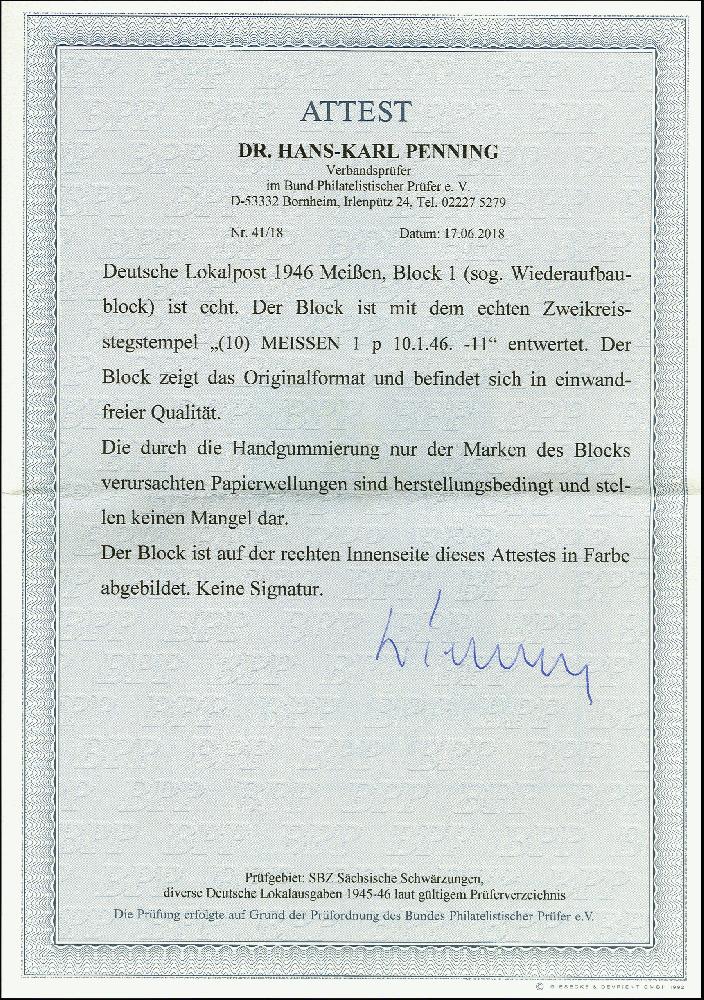 ATTEST
DR. HANS-KARL PENNING
Verbandsprüfer
im Bund Philatelistischer Prüfer e. V.
D-53332 Bornheim, Irlenpütz 24, Tel. 02227 5279
Nr. 41/18 Datum: 17.06.2018
Deutsche Lokalpost 1946 Meißen, Block 1 (sog. Wiederaufbau-
block) ist echt. Der Block ist mit dem echten Zweikreis-
stegstempel „(10) MEISSEN 1 p 10.1.46. -11“ entwertet. Der
Block zeigt das Originalformat und befindet sich in einwand-
freier Qualität.
Die durch die Handgummierung nur der Marken des Blocks
verursachten Papierwellungen sind herstellungsbedingt und stel-
len keinen Mangel dar.
Der Block ist auf der rechten Innenseite dieses Attestes in Farbe
abgebildet. Keine Signatur.
Prüfgebiet: SBZ Sächsische Schwärzungen,
diverse Deutsche Lokalausgaben 1945-46 laut gültigem Prüferverzeichnis
Die Prüfung erfolgte auf Grund der Prüfordnung des Bundes Philatelistischer Prüfer e.V.
© GIESECKE & DEVRIENT GMBH 1992